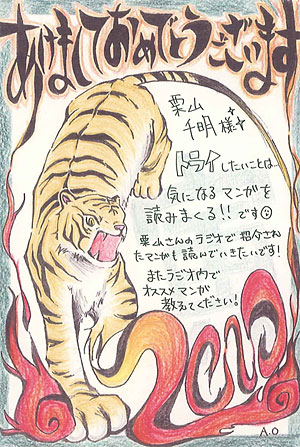 あけましておめでとうございます
栗山
千明様
トライしたいことは…
気になるマンガを
読みまくる!!です
栗山さんのラジオで紹介され
たマンガも読んでいきたいです!
またラジオ内で
オススメマンガ
教えてください!
2010
A.O